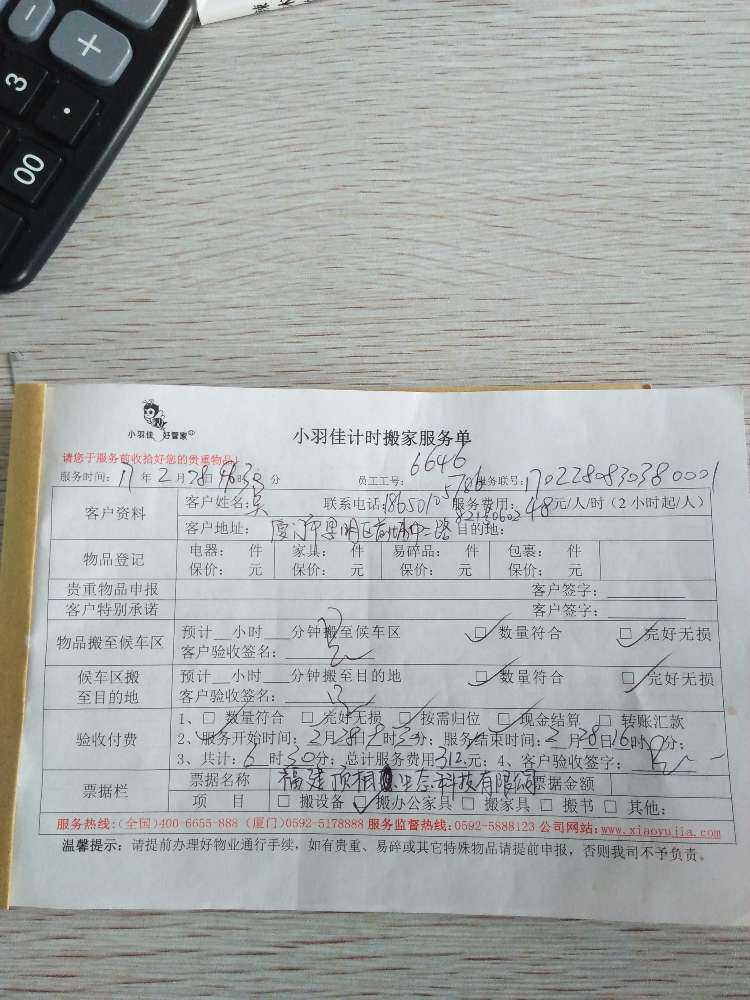 3
00
小羽佳 好管家
小羽佳计时搬家服务单
请您于服务前收拾好您的贵重物品！
服务时间：17年2月28日 时30分 员工工号：6646 服务联号：170228083038 0001
客户资料 客户姓名：吴 联系电话：18650105786 服务费用：48元/人/时（2小时起/人）
客户地址：厦门市思明区 二路 目的地：
物品登记 电器： 件 家具： 件 易碎品： 件 包裹： 件
保价： 元 保价： 元 保价： 元 保价： 元
贵重物品申报 客户签字：
客户特别承诺 客户签字：
物品搬至候车区 预计__小时__分钟搬至候车区 □ 数量符合 □ 完好无损
客户验收签名：
候车区搬至目的地 预计__小时__分钟搬至目的地 □ 数量符合 □ 完好无损
客户验收签名：
验收付费 1、□ 数量符合 □ 完好无损 □ 按需归位 □ 现金结算 □ 转账汇款
2、服务开始时间：2月28日 时30分；服务结束时间：2月28日16时 分；
3、共计：6时30分；总计服务费用312元；4、客户验收签字：
票据栏 票据名称 福建顶相 生态科技有限公司 票据金额
项 目 □ 搬设备 □ 搬办公家具 □ 搬家具 □ 搬书 □ 其他：
服务热线：（全国）400-6655-888（厦门）0592-5178888 服务监督热线：0592-5888123 公司网站：www.xiaoyujia.com
温馨提示：请提前办理好物业通行手续，如有贵重、易碎或其它特殊物品请提前申报，否则我司不予负责。